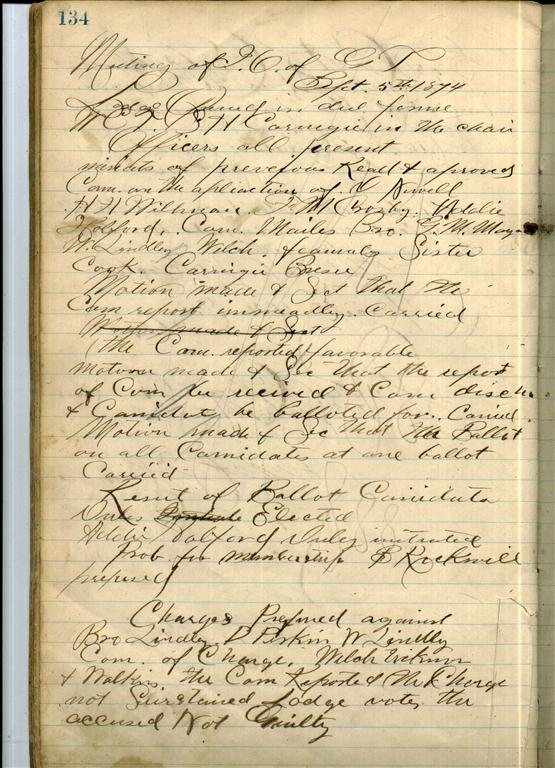 134
Meeting of I.O. of G T
Sept. 5th 1894
Lodge opened in due forme
W C T B H Carnegie in the chair
Officers all present
minuts of prevefous Read & aproved
Com. on the apliaction of Newell
H H Wilkman. Crosby. Addie
Tolford. Com. Mailes Bro. G. M.
W. Lindley Welch. & Sister
Cook. Carnigie
Motion made & Sec that the
Com report immeadtly. Carried
(the Com. reported) favorable
motion made & Sec that the report
of Com be recived & Com
& Canidat be balloted for. Caried
Motion made & Sec that the Ballot
on all Canidates at one ballot
Carried
Result of Ballot Canidats
Duley Elected
Addie Tolford Duley initiated
Prob. for membership Rockwill
prepared
Charges Prefured against
Bro Lindley. Perkin W Lindley
Com. of Charge. Welch
& Walkins. the Com Reported the Charge
not Surstained Lodge votes the
accused Not Guilty